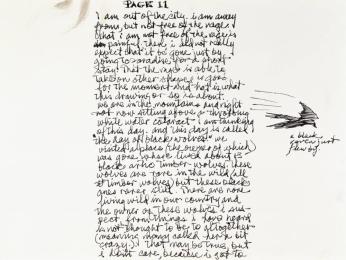 PAGE 11
I am out of the city. I am away
from, but not free of the rage
(that I am not free of the rage is
painful, then, I did not really
expect that it be gone just by
going to paradise, for a short
stay) that the rage is able to
take on other shape is good
for the moment and that is what
this drawing is about.
we are in the mountains and right
not now sitting above a throbbing
white water cataract - I am thinking
of this day. and this day is called
the day of black wolves. we
visited a place the owner of which
was gone where lived about 15
black arctic timber wolves. these
wolves are rare in the wild (all
timber wolves) but these black
ones rarer still. There are none
living wild in our country and
the owner of these wolves I sus-
pect, from things I have heard
is not thought to be altogether
(meaning many called her a bit
crazy.) That may be true, but
I don't care, because I got to
a black
raven just
flew by.